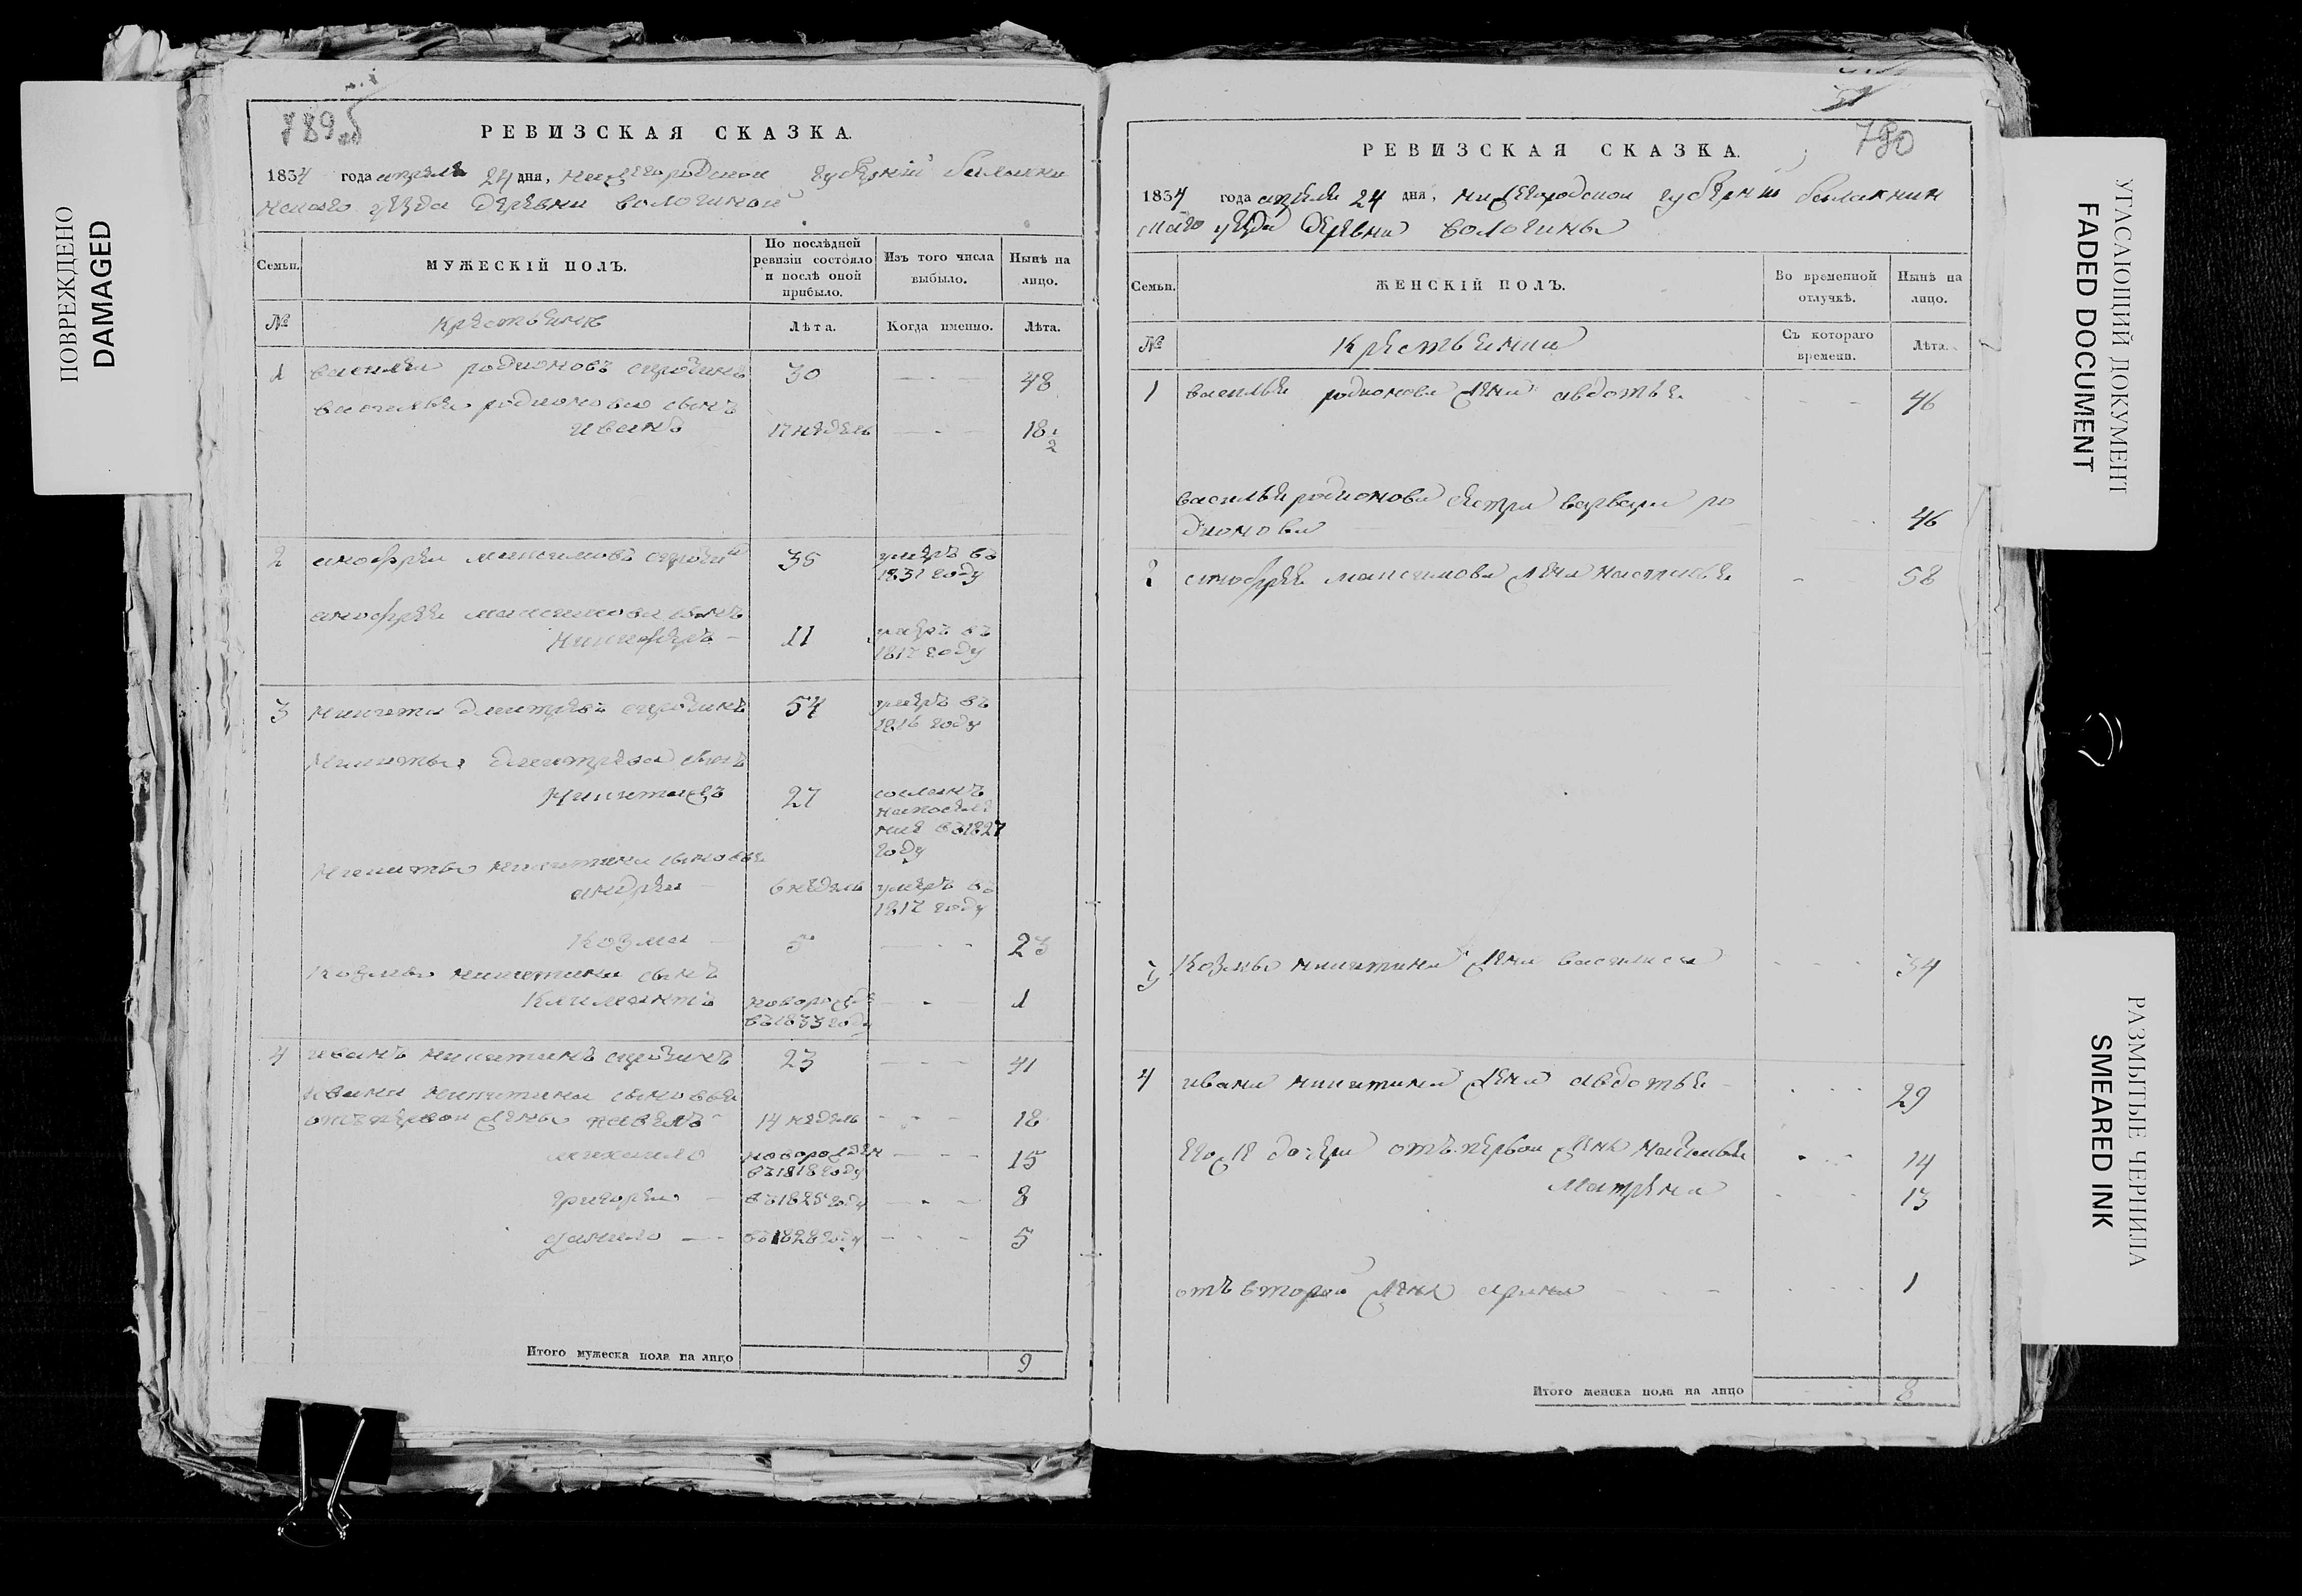 ПОВРЕЖДЕНО
DAMAGED
789об
РЕВИЗСКАЯ СКАЗКА.
1834 года апреля 24 дня, нижегородской губернии балахни
нскаго уезда деревни
Семьи.
МУЖЕСКІЙ ПОЛЪ.
По послѣдней ревизіи состояло и послѣ оной прибыло.
Изъ того числа выбыло.
Нынѣ на лицо.
№
крестьянъ
Лѣта.
Когда именно.
Лѣта.
1 василеи родионовъ 30 48
василья родионова сынъ
иванъ 17 недель 18 1/2
2 анофреи максимовъ 35 умеръ въ 1831 году
анофрея максимова сынъ
никифоръ 11 умеръ въ 1817 году
3 никита дмитревъ 54 умеръ въ 1816 году
никиты дмитрева сынъ
никита 27 сосланъ на поселение въ 1827 году
никиты никитина сыновья
андреи 6 недель умеръ въ 1817 году
козма 5 23
козмы никитина сынъ
климантъ новорожде въ 1833 году 1
4 иванъ никитинъ 23 41
ивана никитина сыновья
отъ первои жены павелъ 14 недель 18
михаило новорожден въ 1818 году 15
григореи въ 1825 году 8
данило въ 1828 году 5
Итого мужеска пола на лицо 9
790
РЕВИЗСКАЯ СКАЗКА.
1834 года апреля 24 дня, нижегородской губернии балахнин
скаго уезда деревни
Семьи.
ЖЕНСКІЙ ПОЛЪ.
Во временной отлучкѣ.
Нынѣ на лицо.
№
крестьянки
Съ котораго времени.
Лѣта.
1 василья родионова жена авдотья 46
василья родионова сестра варвара ро
дионова 46
2 анофрея максимова жена настасья 58
3 козмы никитина жена василиса 34
4 ивана никитина жена авдотья 29
его же дочери отъ первои жены наталья 14
матрена 13
отъ второй жены арина 1
Итого женска пола на лицо 8
УГАСАЮЩИЙ ДОКУМЕНТ
FADED DOCUMENT
РАЗМЫТЫЕ ЧЕРНИЛА
SMEARED INK